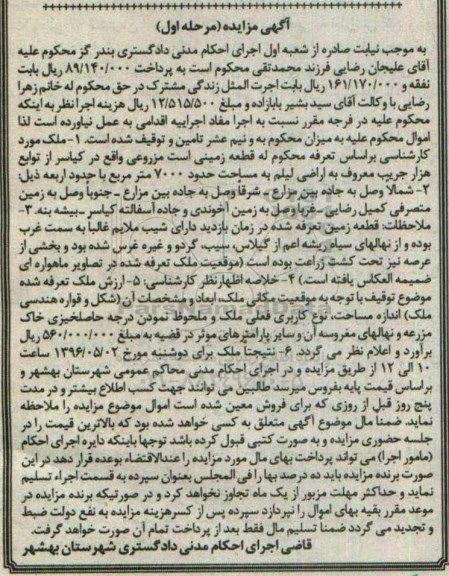 آگهی مزایده (مرحله اول)
به موجب نیابت صادره از شعبه اول اجرای احکام مدنی دادگستری بندر گز محکوم علیه
آقای علیجان رضایی فرزند محمدتقی محکوم است به پرداخت ۸۹/۱۴۰/۰۰۰ ریال بابت
نفقه و ۱۶۱/۱۷۰/۰۰۰ ریال بابت اجرت المثل زندگی مشترک در حق محکوم له خانم زهرا
رضایی با وکالت آقای سید بشیر بابازاده و مبلغ ۱۲/۵۱۵/۵۰۰ ریال هزینه اجرا نظر به اینکه
محکوم علیه در فرجه مقرر نسبت به اجرا مفاد اجراییه اقدامی به عمل نیاورده است لذا
اموال محکوم علیه به میزان محکوم به و نیم عشر تامین و توقیف شده است. ۱- ملک مورد
کارشناسی براساس تعرفه محکوم له قطعه زمینی است مزروعی واقع در کیاسر از توابع
هزار جریب معروف به اراضی لیلم به مساحت حدود ۷۰۰۰ متر مربع با حدود اربعه ذیل:
۲- شمالا وصل به جاده بین مزارع - شرقا وصل به جاده بین مزارع - جنوبا وصل به زمین
متصرفی کمیل رضایی - غربا وصل به زمین آخوندی و جاده آسفالته کیاسر - بیشه بنه. ۳-
ملاحظات: قطعه زمین تعرفه شده در زمان بازدید دارای شیب ملایم غالبا به سمت غرب
بوده و از نهالهای سیاه ریشه اعم از گیلاس، سیب، گردو و غیره غرس شده بود و بخشی از
عرصه نیز تحت کشت زراعت بوده است (موقعیت ملک تعرفه شده در تصاویر ماهواره ای
ضمیمه العکاس یافته است.) ۴- خلاصه اظهارنظر کارشناسی: ۵- ارزش ملک تعرفه شده
موضوع توقیف با توجه به موقعیت مکانی ملک، ابعاد و مشخصات آن (شکل و قواره هندسی
ملک) اندازه مساحت، نوع کاربری فعلی ملک و ملحوظ نمودن درجه حاصلخیزی خاک
مزرعه و نهالهای مغروسه آن و سایر پارامترهای موثر در قضیه به مبلغ ۵۶۰/۰۰۰/۰۰۰ ریال
برآورد و اعلام نظر می گردد. ۶- نتیجتا ملک برای دوشنبه مورخ ۱۳۹۶/۰۵/۰۲ ساعت
۱۰ الی ۱۲ از طریق مزایده و در اجرای احکام مدنی محاکم عمومی شهرستان بهشهر و
براساس قیمت پایه بفروش میرسد طالبین می توانند جهت کسب اطلاع بیشتر و در مدت
پنج روز قبل از روزی که برای فروش معین شده است اموال موضوع مزایده را ملاحظه
نماید. ضمنا مال موضوع آگهی متعلق به کسی خواهد شده بود که بالاترین قیمت را در
جلسه حضوری مزایده و به صورت کتبی قبول کرده باشد توجها باینکه دایره اجرای احکام
(مامور اجرا) می تواند پرداخت بهای مال مورد مزایده را عندالاقتضاء بوعده قرار دهد در این
صورت برنده مزایده باید ده درصد بها را فی المجلس بعنوان سپرده به قسمت اجراء تسلیم
نماید و حداکثر مهلت مزبور از یک ماه تجاوز نخواهد کرد و در صورتیکه برنده مزایده در
موعد مقرر بقیه بهای اموال را نپردازد سپرده پس از کسر هزینه مزایده به نفع دولت ضبط
و تجدید می گردد ضمنا تسلیم مال فقط بعد از پرداخت تمام آن صورت خواهد گرفت.
قاضی اجرای احکام مدنی دادگستری شهرستان بهشهر